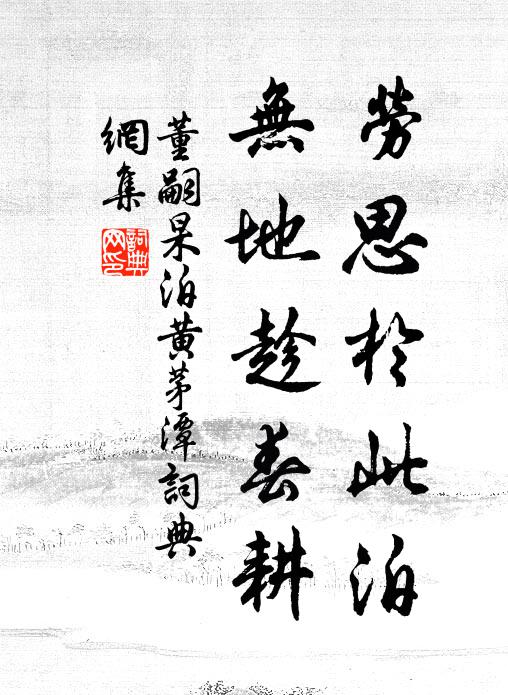 勞思於此泊
無地趁春耕
董嗣杲泊黃茅潭詞典
網集
詞典網印